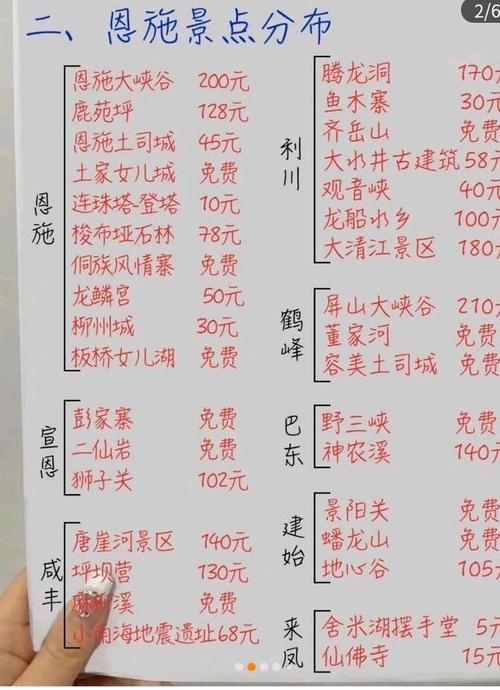 2/6
二、恩施景点分布
恩施
恩施大峡谷 200元
鹿苑坪 128元
恩施土司城 45元
土家女儿城 免费
连珠塔-登塔 10元
梭布垭石林 78元
侗族风情寨 免费
龙鳞宫 50元
柳州城 30元
板桥女儿湖 免费
宣恩
彭家寨 免费
二仙岩 免费
狮子关 102元
咸丰
唐崖河景区 140元
坪坝营 130元
溪 免费
小南海地震遗址68元
利川
腾龙洞 170元
鱼木寨 30元
齐岳山 免费
大水井古建筑 58元
观音峡 40元
龙船水乡 100元
大清江景区 180元
鹤峰
屏山大峡谷 210元
董家河 免费
容美土司城 免费
巴东
野三峡 免费
神农溪 140元
建始
景阳关 免费
蟠龙山 免费
地心谷 105元
来凤
舍米湖摆手堂 5元
仙佛寺 15元